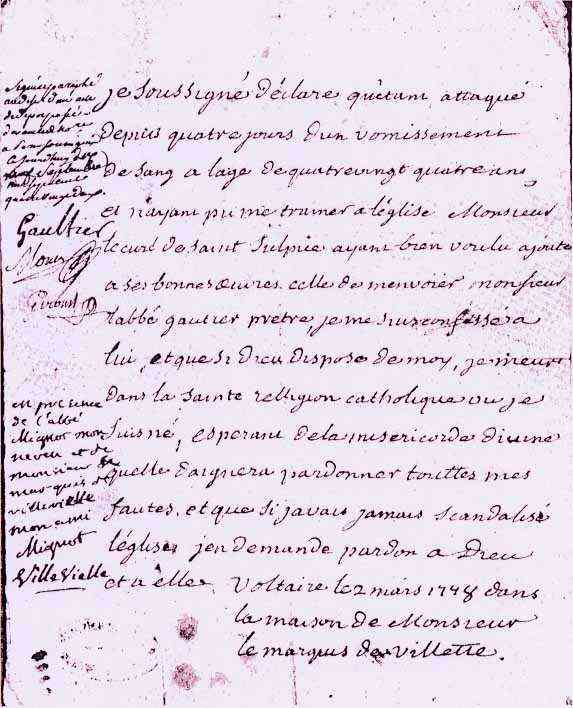 je soussigné déclare qu'étant attaqué
depuis quatre jours d'un vomissement
de sang a l'age de quatrevingt quatre ans
et n'ayant pu me trainer a l'église Monsieur
le curé de saint Sulpice ayant bien voulu ajouter
a ses bonnes œuvres celle de m'envoier monsieur
l'abbé gautier prêtre, je me suis confessé a
lui, et que si Dieu dispose de moy, je meurs
dans la sainte relligion catholique ou je
suis né, esperant de la misericorde divine
quelle daignera pardonner touttes mes
fautes, et que si javais jamais scandalisé
l'église, jen demande pardon a Dieu
et a elle. Voltaire le 2 mars 1778 dans
la maison de Monsieur
le marquis de villette.
Signé et paraphé
Septembre
Gaultier
en présence
de l'abbé
Mignot mon
neveu et de
monsieur le
marquis de
villevielle
mon ami
Mignot
Villevielle